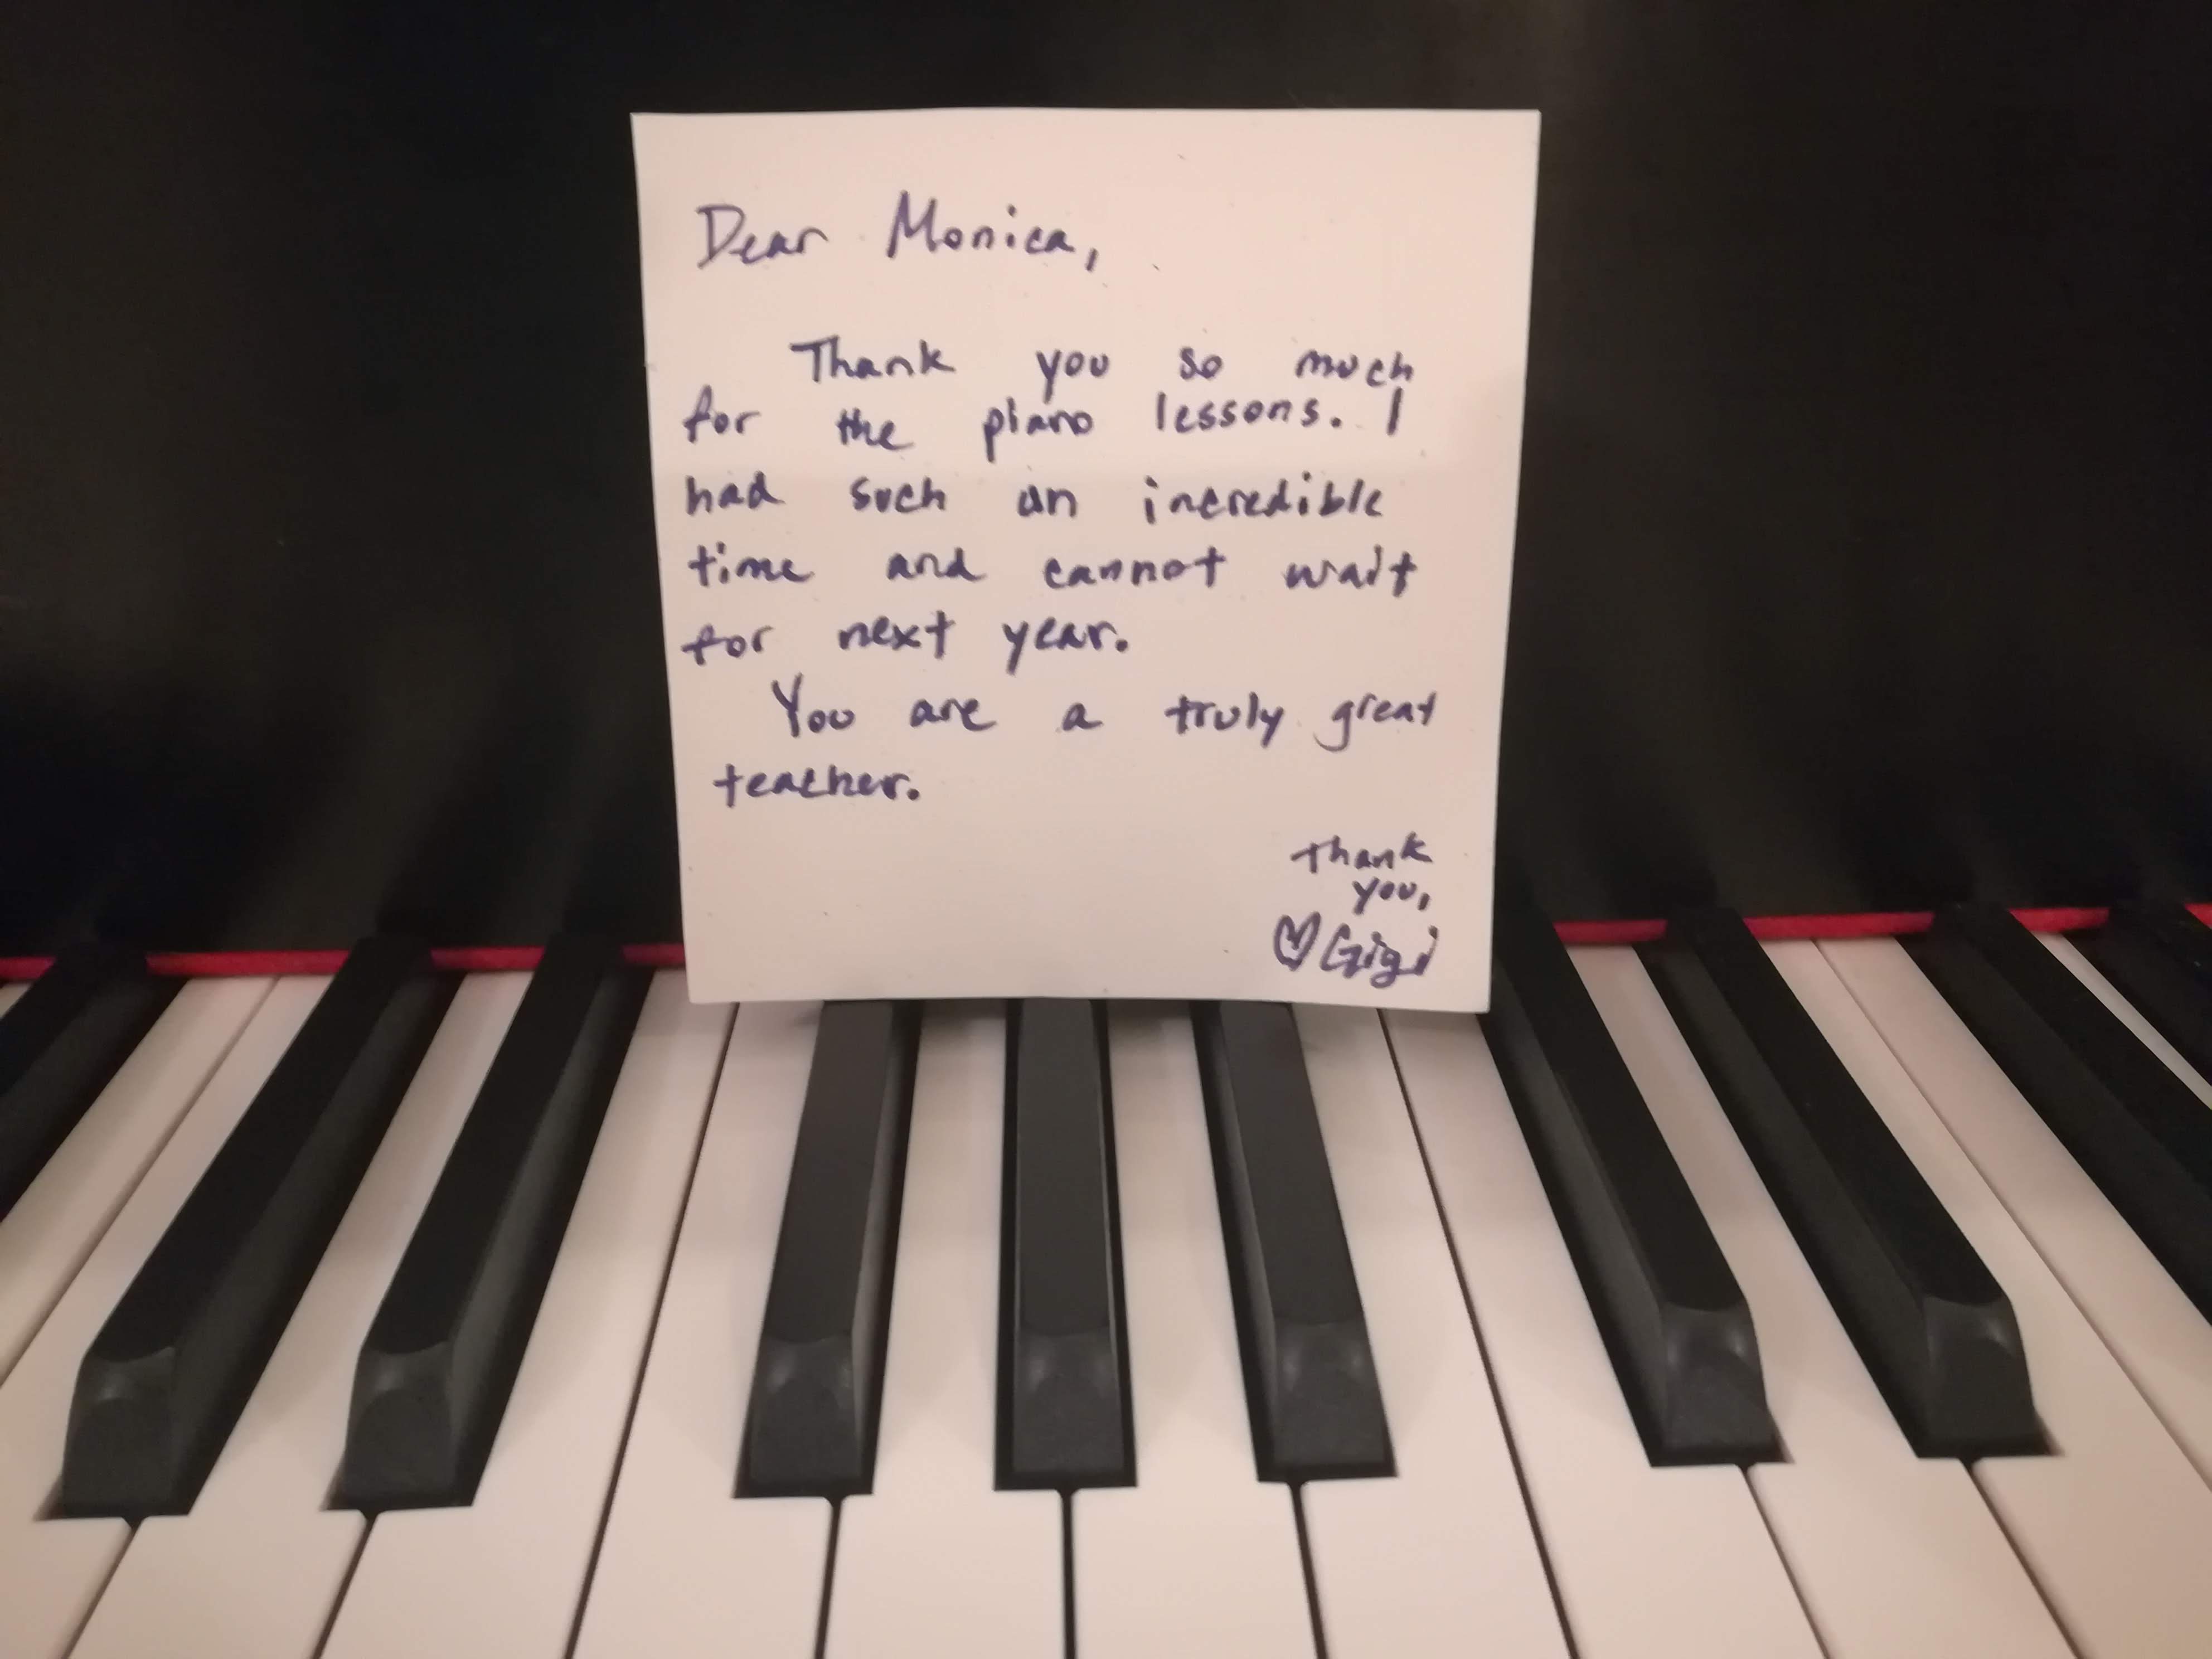 Dear Monica,
Thank you so much
for the piano lessons. I
had such an incredible
time and cannot wait
for next year.
You are a truly great
teacher.
Thank
you,
♡ Gigi